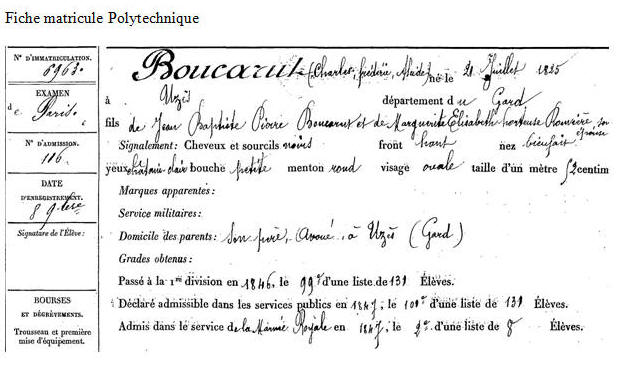 Fiche matricule Polytechnique
N° D'IMMATRICULATION.
8963.
EXAMEN
de Paris.
N° D'ADMISSION.
116.
DATE
D'ENREGISTREMENT.
8 9bre
Signature de l'Élève:
BOURSES
ET DÉGRÈVEMENTS.
Trousseau et première
mise d'équipement.
Boucarut (Charles, frédéric, Alcide) né le 21 Juillet 1825
à Uzès département du Gard
fils de Jean Baptiste Pierre Boucarut et de Marguerite Elisabeth hortense son épouse
Signalement: Cheveux et sourcils noirs front haut nez bienfait
yeux châtain clair bouche petite menton rond visage ovale taille d'un mètre 62 centim
Marques apparentes:
Service militaires:
Domicile des parents: Son père, Avoué, à Uzès (Gard)
Grades obtenus:
Passé à la 1re division en 1846, le 99e d'une liste de 131 Élèves.
Déclaré admissible dans les services publics en 1847, le 101e d'une liste de 131 Élèves.
Admis dans le service de la Marine Royale en 1847, le 2e d'une liste de 8 Élèves.